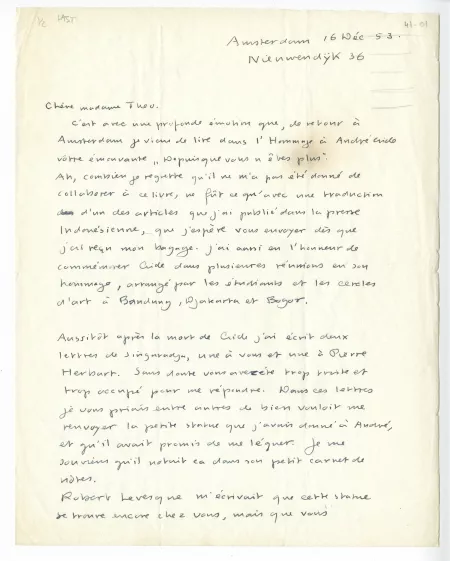 1/2 LAST
41-01
Amsterdam 16 Déc 53.
Nieuwendÿk 36
Chère madame Théo.
C'est avec une profonde émotion que, de retour à
Amsterdam je viens de lire dans l'Hommage à André Gide
vôtre émouvante „Depuis que vous n'êtes plus".
Ah, combien je regrette qu'il ne m'a pas été donné de
collaborer à ce livre, ne fût ce qu'avec une traduction
d'un des articles que j'ai publié dans la presse
Indonésienne, que j'espère vous envoyer dès que
j'ai reçu mon bagage. j'ai aussi eu l'honneur de
commémorer Gide dans plusieures réunions en son
hommage, arrangé par les étudiants et les cercles
d'art à Bandung, Djakarta et Bogor.
Aussitôt après la mort de Gide j'ai écrit deux
lettres de Singaradja, une à vous et une à Pierre
Herbart. Sans doute vous avez été trop triste et
trop occupé pour me répondre. Dans ces lettres
je vous priais entre autres de bien vouloir me
renvoyer la petite statue que j'avais donné à André,
et qu'il avait promis de me léguer. Je me
souviens qu'il notait ça dans son petit carnet de
nôtes.
Robert Levesque m'écrivait que cette statue
se trouve encore chez vous, mais que vous